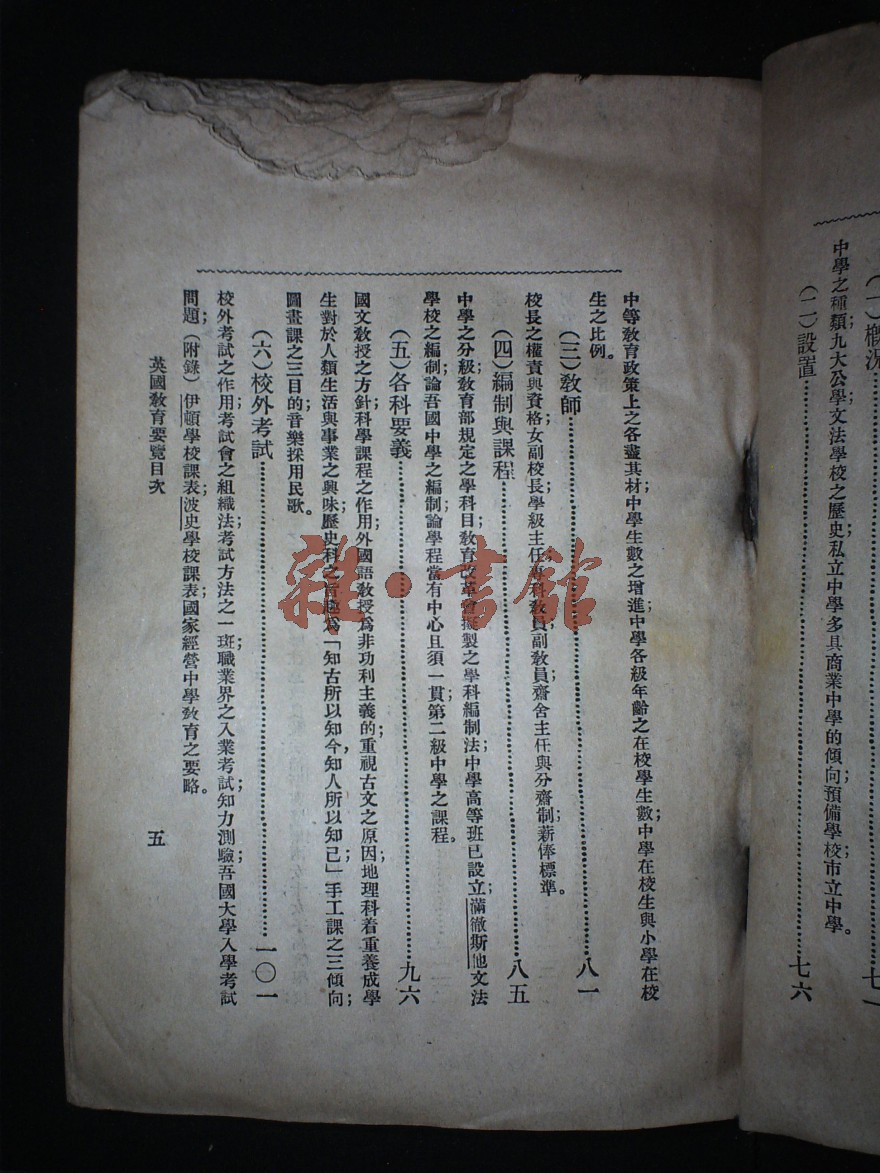 (一)概況……七一
中學之種類;九大公學;文法學校之歷史;私立中學多具商業中學的傾向;預備學校;市立中學。
(二)設置……七六
中等教育政策上之各盡其材;中學生數之增進;中學各級年齡之在校學生數;中學在校生與小學在校
生之比例。
(三)教師……八一
校長之權責與資格;女副校長;學級主任;專科教員;副教員;齋舍主任與分齋制;薪俸標準。
(四)編制與課程……八五
中學之分級;教育部規定之學科目;教育改革會擬製之學科編制法;中學高等班已設立;滿徹斯他文法
學校之編制;論吾國中學之編制;論學程當有中心且須一貫;第二級中學之課程。
(五)各科要義……九六
國文教授之方針;科學課程之作用;外國語教授爲非功利主義的;重視古文之原因;地理科着重養成學
生對於人類生活與事業之興味;歷史科之旨趣爲「知古所以知今,知人所以知己」;手工課之三傾向;
圖畫課之三目的;音樂採用民歌。
(六)校外考試……一〇一
校外考試之作用;考試會之組織法;考試方法之一班;職業界之入業考試;知力測驗;吾國大學入學考試
問題;(附錄)伊頓學校課表;波史學校課表;國家經營中學教育之要略。
英國教育要覽目次
五
雜·書館